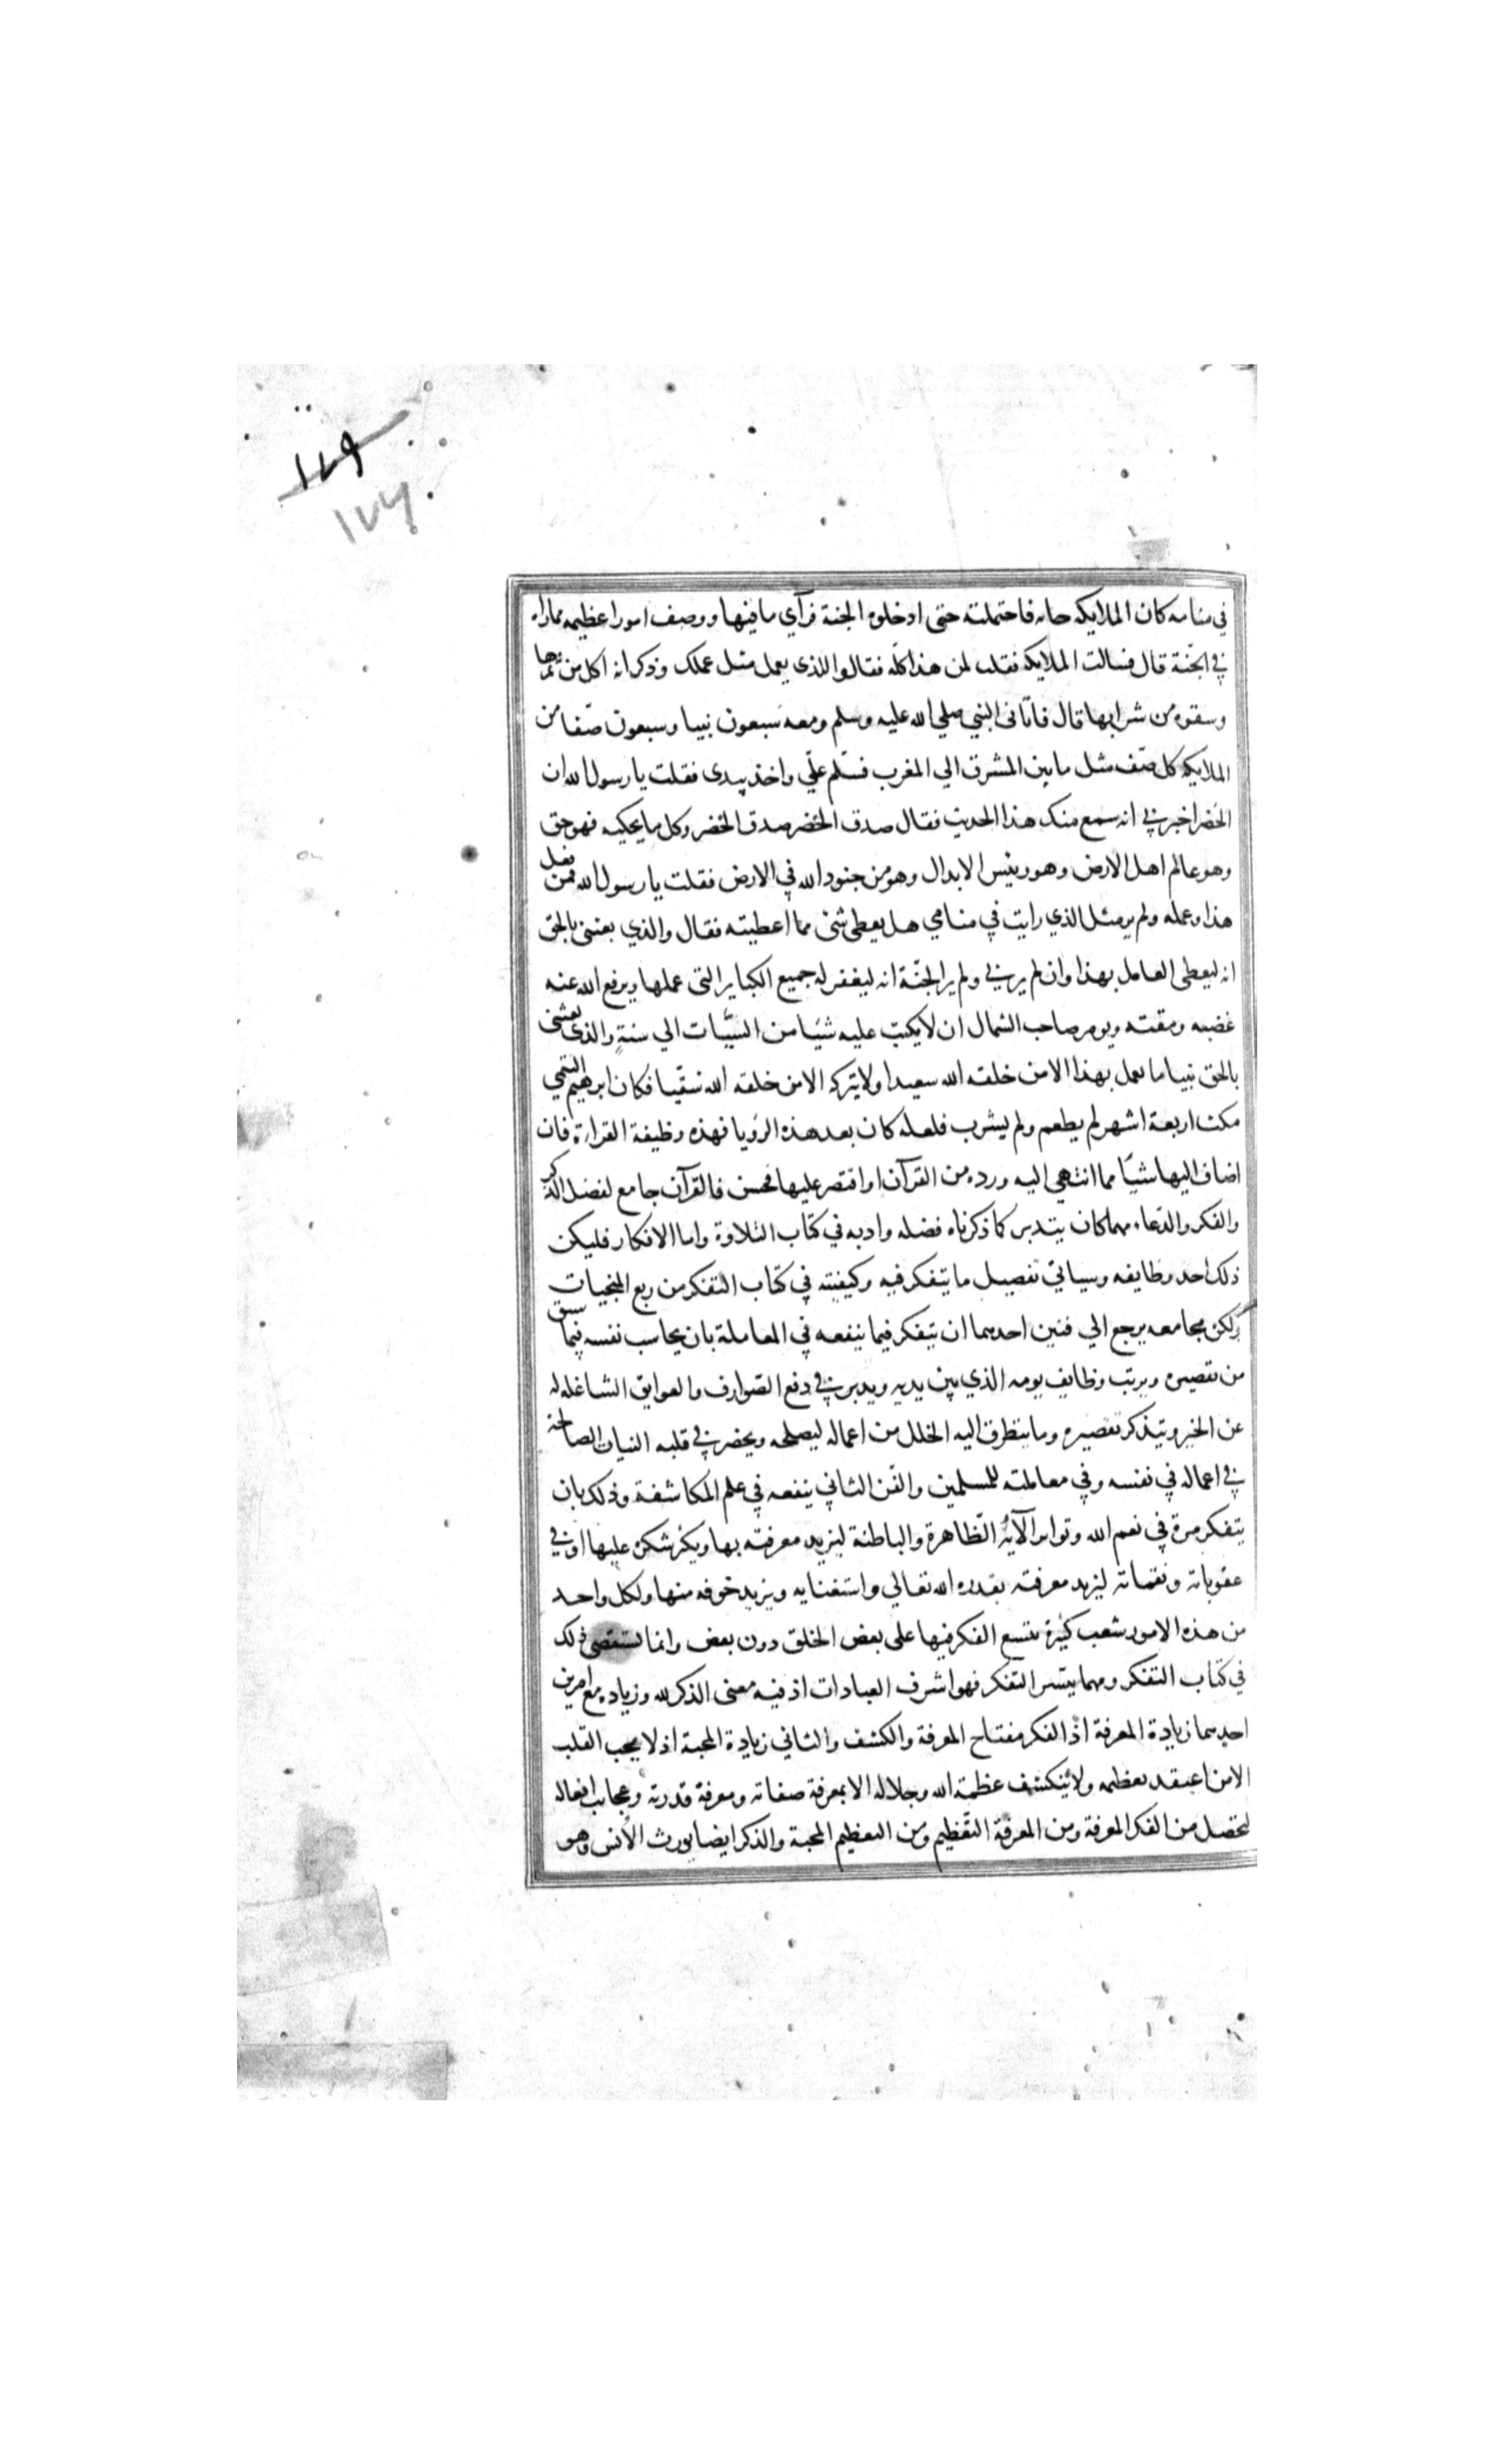 ١٧٩
١٧٧
في منامه كان الملايكه جاته فاحتملته حتى ادخلوه الجنة فرآي مافيها ووصف امورا عظيمه مماراه
في الجنّة قال فسالت الملايكه فقلت لمن هذا كلّه فقالوا للذى يعمل مثل عملك وذكر انه اكل من ثمرها
وسقوه من شرابها قال فاتانى النبي صلي الله عليه وسلم ومعه سبعون نبيا وسبعون صفّا من
الملايكه كل صّف مثل ما بين المشرق الي المغرب فسّلم علّي واخذ بيدى فقلت يا رسول الله ان
الخضر اخبرني انه سمع منك هذا الحديث فقال صدق الخضر صدق الخضر وكل ما يحكيه فهو حق
وهو عالم اهل الارض وهو رييس الابدال وهو من جنود الله في الارض فقلت يا رسول الله فمن فعل
هذا وعمله ولم ير مثل الذي رايت في منامي هل يعطى شئ مما اعطيته فقال والذي بعثنى بالحق
انه ليعطى العامل بهذا وان لم يرني ولم ير الجنّة انه ليغفر له جميع الكبايرالتى عملها ويرفع الله عنه
غضبه ومقته ويومر صاحب الشمال ان لا يكتب عليه شيًا من السيّيات الي سنةٍ والذى بعثنى
بالحق نبيا ما يعمل بهذا الا من خلقه الله سعيدا ولا يتركه الا من خلقه الله شقّيا فكان ابرهيم التيمي
مكث اربعة اشهر لم يطعم ولم يشرب فلعله كان بعد هذه الرويا فهذه وظيفة القراءة فان
اضاف اليها شيًا مما انتهي اليه ورده من القرآن او اقتصر عليها فحسن فالقرآن جامع لفضل الذكر
والفكر والدّعاء مهما كان بتدبر كما ذكرناه فضله وادبه في كتاب التلاوة واما الافكار فليكن
ذلك احد وظايفه وسياتي تفصيل ما يتفكر فيه وكيفيته في كتاب التفكر من ربع المنجيات
ولكن مجامعه يرجع الي فنين احدهما ان يتفكر فيما ينفعه في المعاملة بان يحاسب نفسه فيما سبق
من تقصيره ويرتب وظايف يومه الذي بين يديه ويدبر في دفع الصوارف والعوايق الشاغله له
عن الخير ويتذكر تقصيره وما يتطرق اليه الخلل من اعماله ليصلحه ويحضر في قلبه النيات الصالحة
في اعماله في نفسه وفي معاملته للمسلمين والفّن الثاني ينفعه في علم المكاشفة وذلك بان
يتفكر مرة في نعم الله وتواتر الآيه الظاهرة والباطنة ليزيد معرفته بها ويكثر شكره عليها او في
عقوباته ونقماته ليزيد معرفته بقدره الله تعالي واستغنايه ويزيد خوفه منها ولكل واحد
من هذه الامور شعب كثيرة يتسع الفكر فيها على بعض الخلق دون بعض وانما نستقصي ذلك
في كتاب التفكر ومهما يتسر التفكر فهو اشرف العبادات اذ فيه معنى الذكر لله وزياده امرين
احدهما زيادة المعرفة اذ الفكر مفتاح المعرفة والكشف والثاني زيادة المحبة اذ لا يحب القلب
الا من اعتقد تعظيمه ولا ينكشف عظمة الله وجلاله الا بمعرفة صفاته ومعرفة قدرته وعجايب افعاله
ليحصل من الفكر المعرفة ومن المعرفة التعظيم ومن التعظيم المحبة والذكر ايضا يورث الأنس وهو